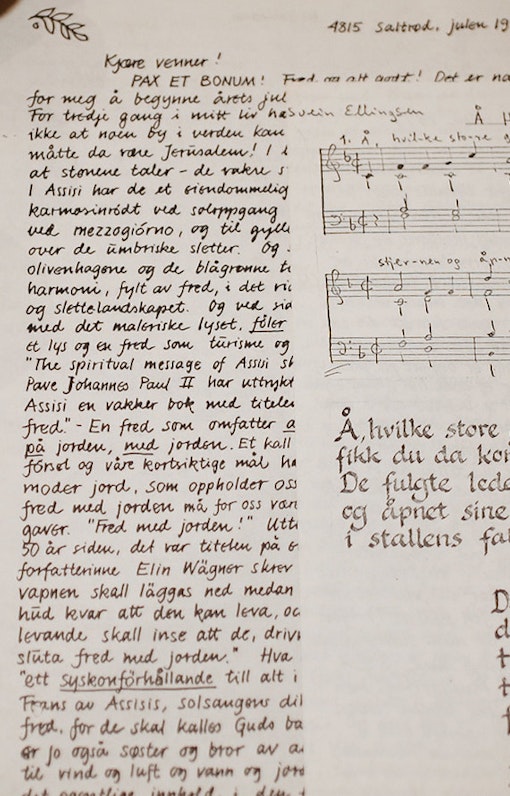 4815 Saltrød, julen 19
Kjære venner!
PAX ET BONUM! Fred og alt godt! Det er na
for meg å begynne årets jul
For tredje gang i mitt liv ha
ikke at noen by i verden kan
måtte da være Jerusalem! I
at stenene taler - de vakre s
I Assisi har de et eiendommelig
karmosinrødt ved soloppgang
ved mezzogiórno, og til gylle
over de ūmbriske sletter. Og
olivenhagene og de blågrønne
harmoni, fylt av fred, i det
og slettelandskapet. Og ved
med det maleriske lyset, føler
et lys og en fred som tūrisme og
"The spiritual message of Assisi sh
Pave Johannes Paul II har uttrykt
Assisi en vakker bok med titelen
fred." - En fred som omfatter a
på jorden, med jorden. Et kall
førsel og våre kortsiktige mål ha
moder jord, som oppholder oss
fred med jorden må for oss vær
gaver. "Fred med jorden!" Utt
50 år siden, det var titelen på e
forfatterinne Elin Wägner skrev
vapnen skall läggas ned medan
hūd kvar att den kan leva, oc
levande skall inse att de, driv
slūta fred med jorden." Hva
"ett syskonförhållande till alt i
Frans av Assisis, solsangens dik
fred, for de skal kalles Guds ba
er jo også søster og bror av a
til vind og luft og vann og jord
Svein Ellingsen
Å
1. Å, hvil-ke store
stjer-nen og åp-n
Å, hvilke store
fikk du da kom
De fulgte lede
og åpnet sine
i stallens fat
D
d
t
t
f